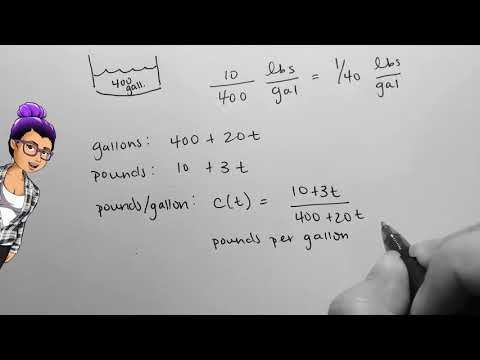 400 gall.
10/400 lbs/gal = 1/40 lbs/gal
gallons: 400 + 20t
pounds: 10 + 3t
pounds/gallon: c(t) = 10+3t / 400+20t
pounds per gallon